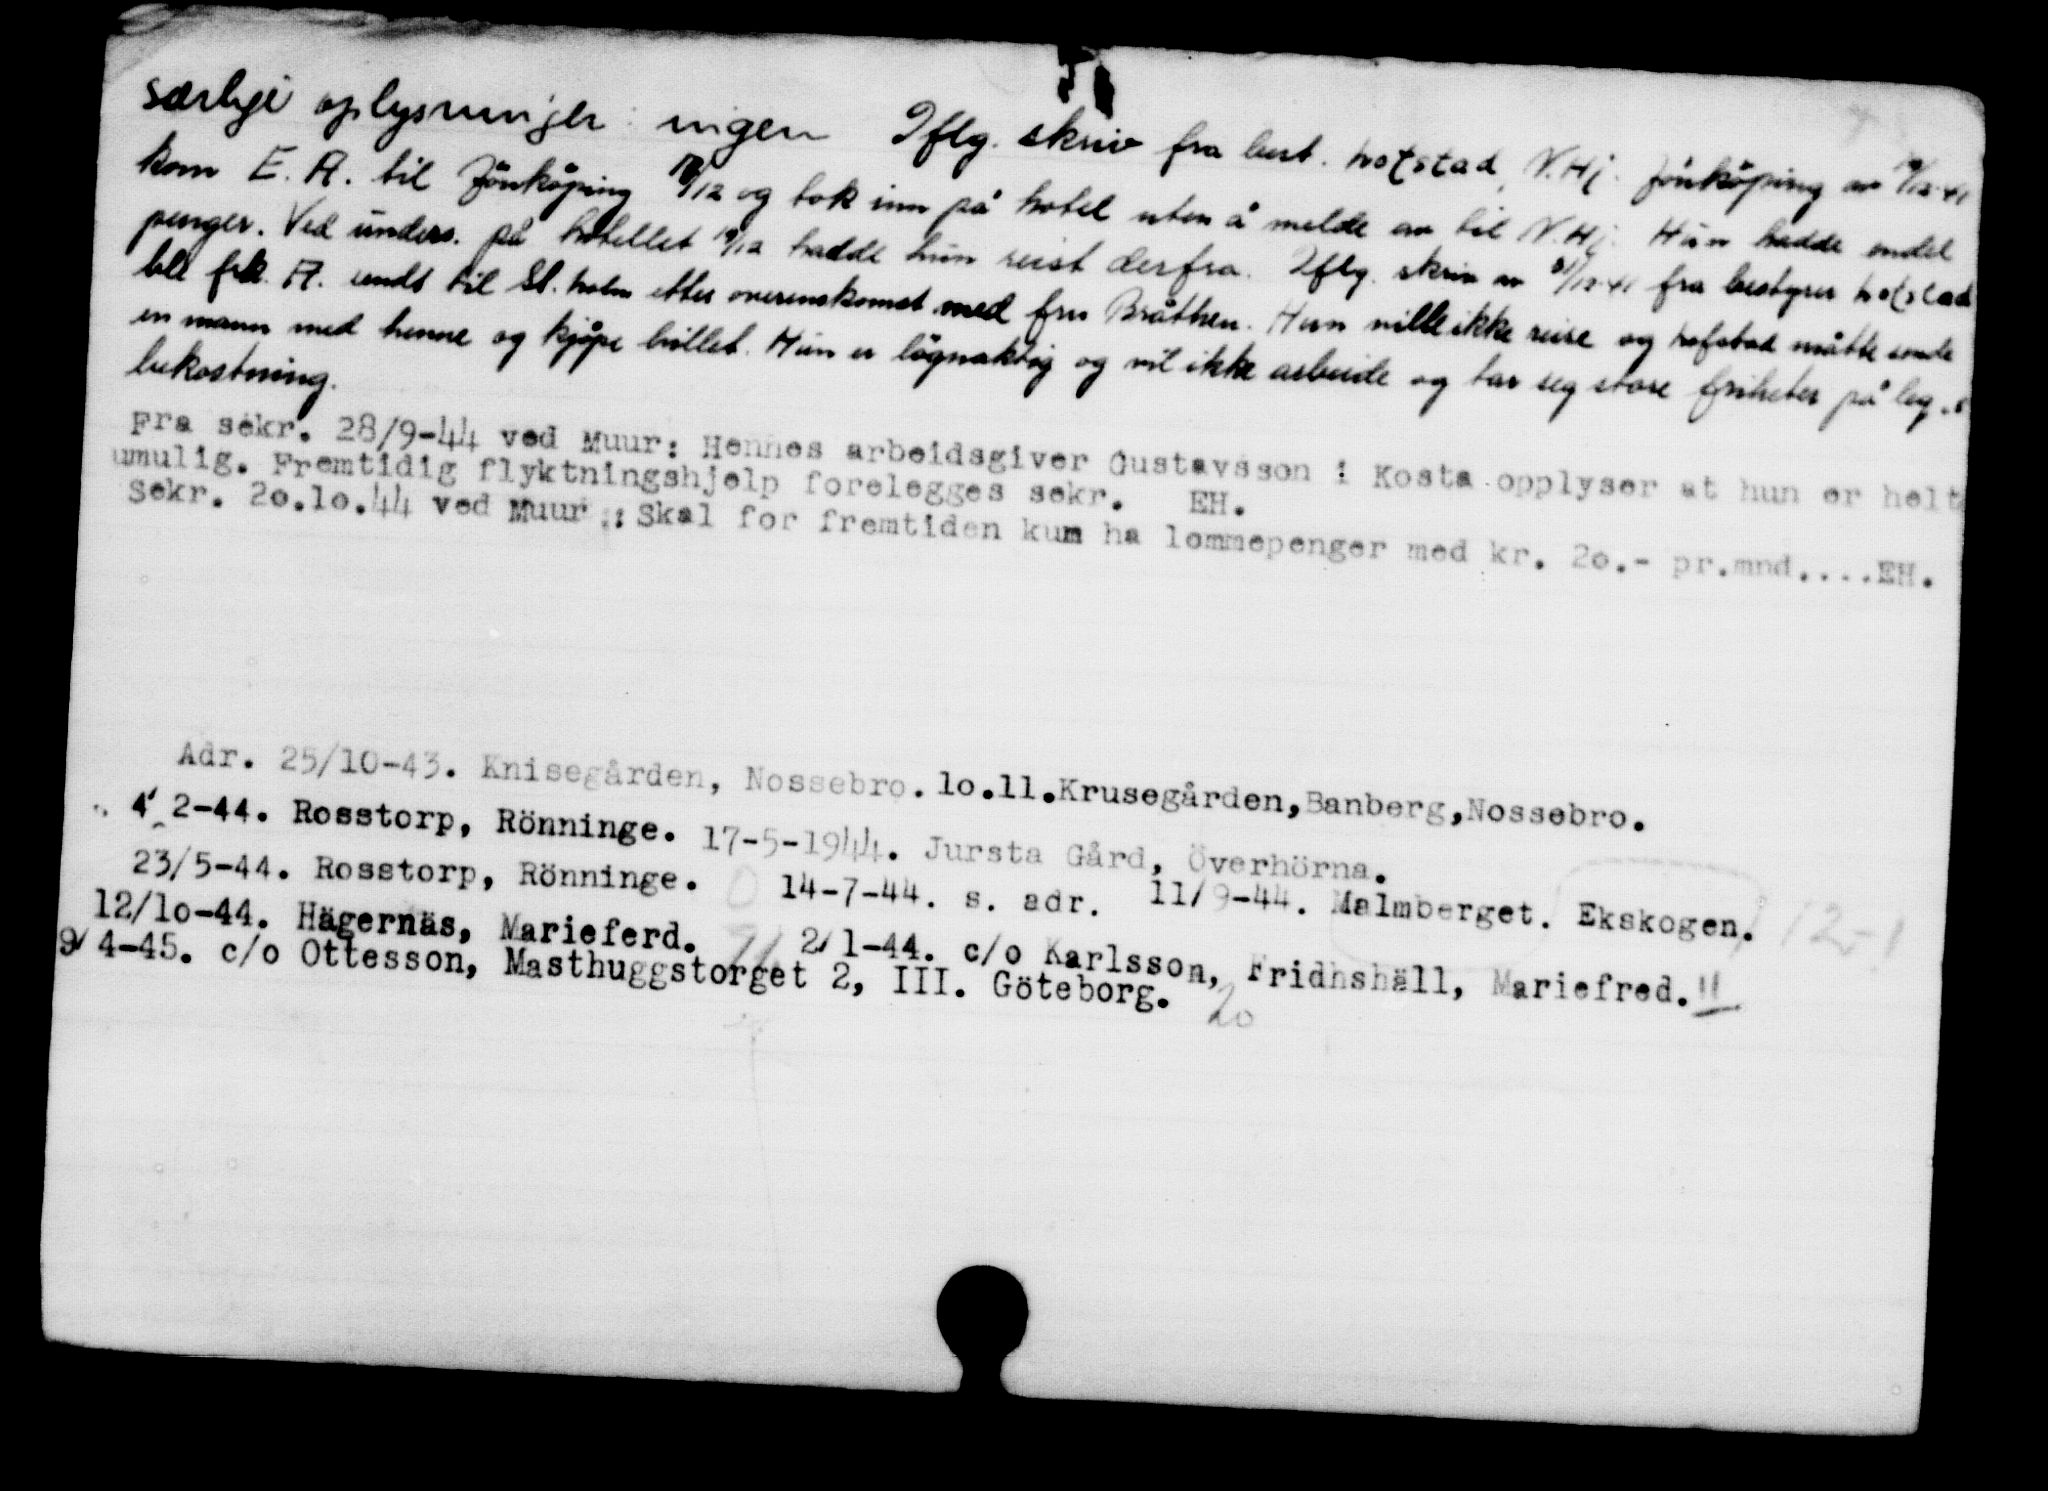 særlige oplysninger: ingen Iflg. skriv fra best. Hofstad, N.Hj. Jönköping av 19/12-41
kom E. A. til Jönköping 18/12 og tok inn på hotel uten å melde av til N.Hj. Hun hadde endel
penger. Ved unders. på hotellet 19/12 hadde hun reist derfra. Iflg. skriv av 31/12-41 fra bestyrer Hofstad
ble frk. A. sendt til St.holm etter overenskomst med fru Bråthen. Hun ville ikke reise og Hofstad måtte sende
en mann med henne og kjøpe billet. Hun er løgnaktig og vil ikke arbeide og tar seg store friheter på leg.s
bekostning.
Fra sekr. 28/9-44 ved Muur: Hennes arbeidsgiver Gustavsson i Kosta opplyser at hun er helt
umulig. Fremtidig flyktningshjelp forelegges sekr. EH.
Sekr. 2o.1o.44 ved Muur : Skal for fremtiden kum ha lommepenger med kr. 2o.- pr.mnd....EH.
Adr. 25/10-43. Knisegården, Nossebro. 1o.11.Krusegården,Banberg,Nossebro.
4/2-44. Rosstorp, Rönninge. 17-5-1944. Jursta Gård, Överhörna.
23/5-44. Rosstorp, Rönninge. 14-7-44. s. adr. 11/9-44. Malmberget. Ekskogen.
12/1o-44. Hägernäs, Marieferd. 2/1-44. c/o Karlsson, Fridhshäll, Mariefred.
9/4-45. c/o Ottesson, Masthuggstorget 2, III. Göteborg.
20